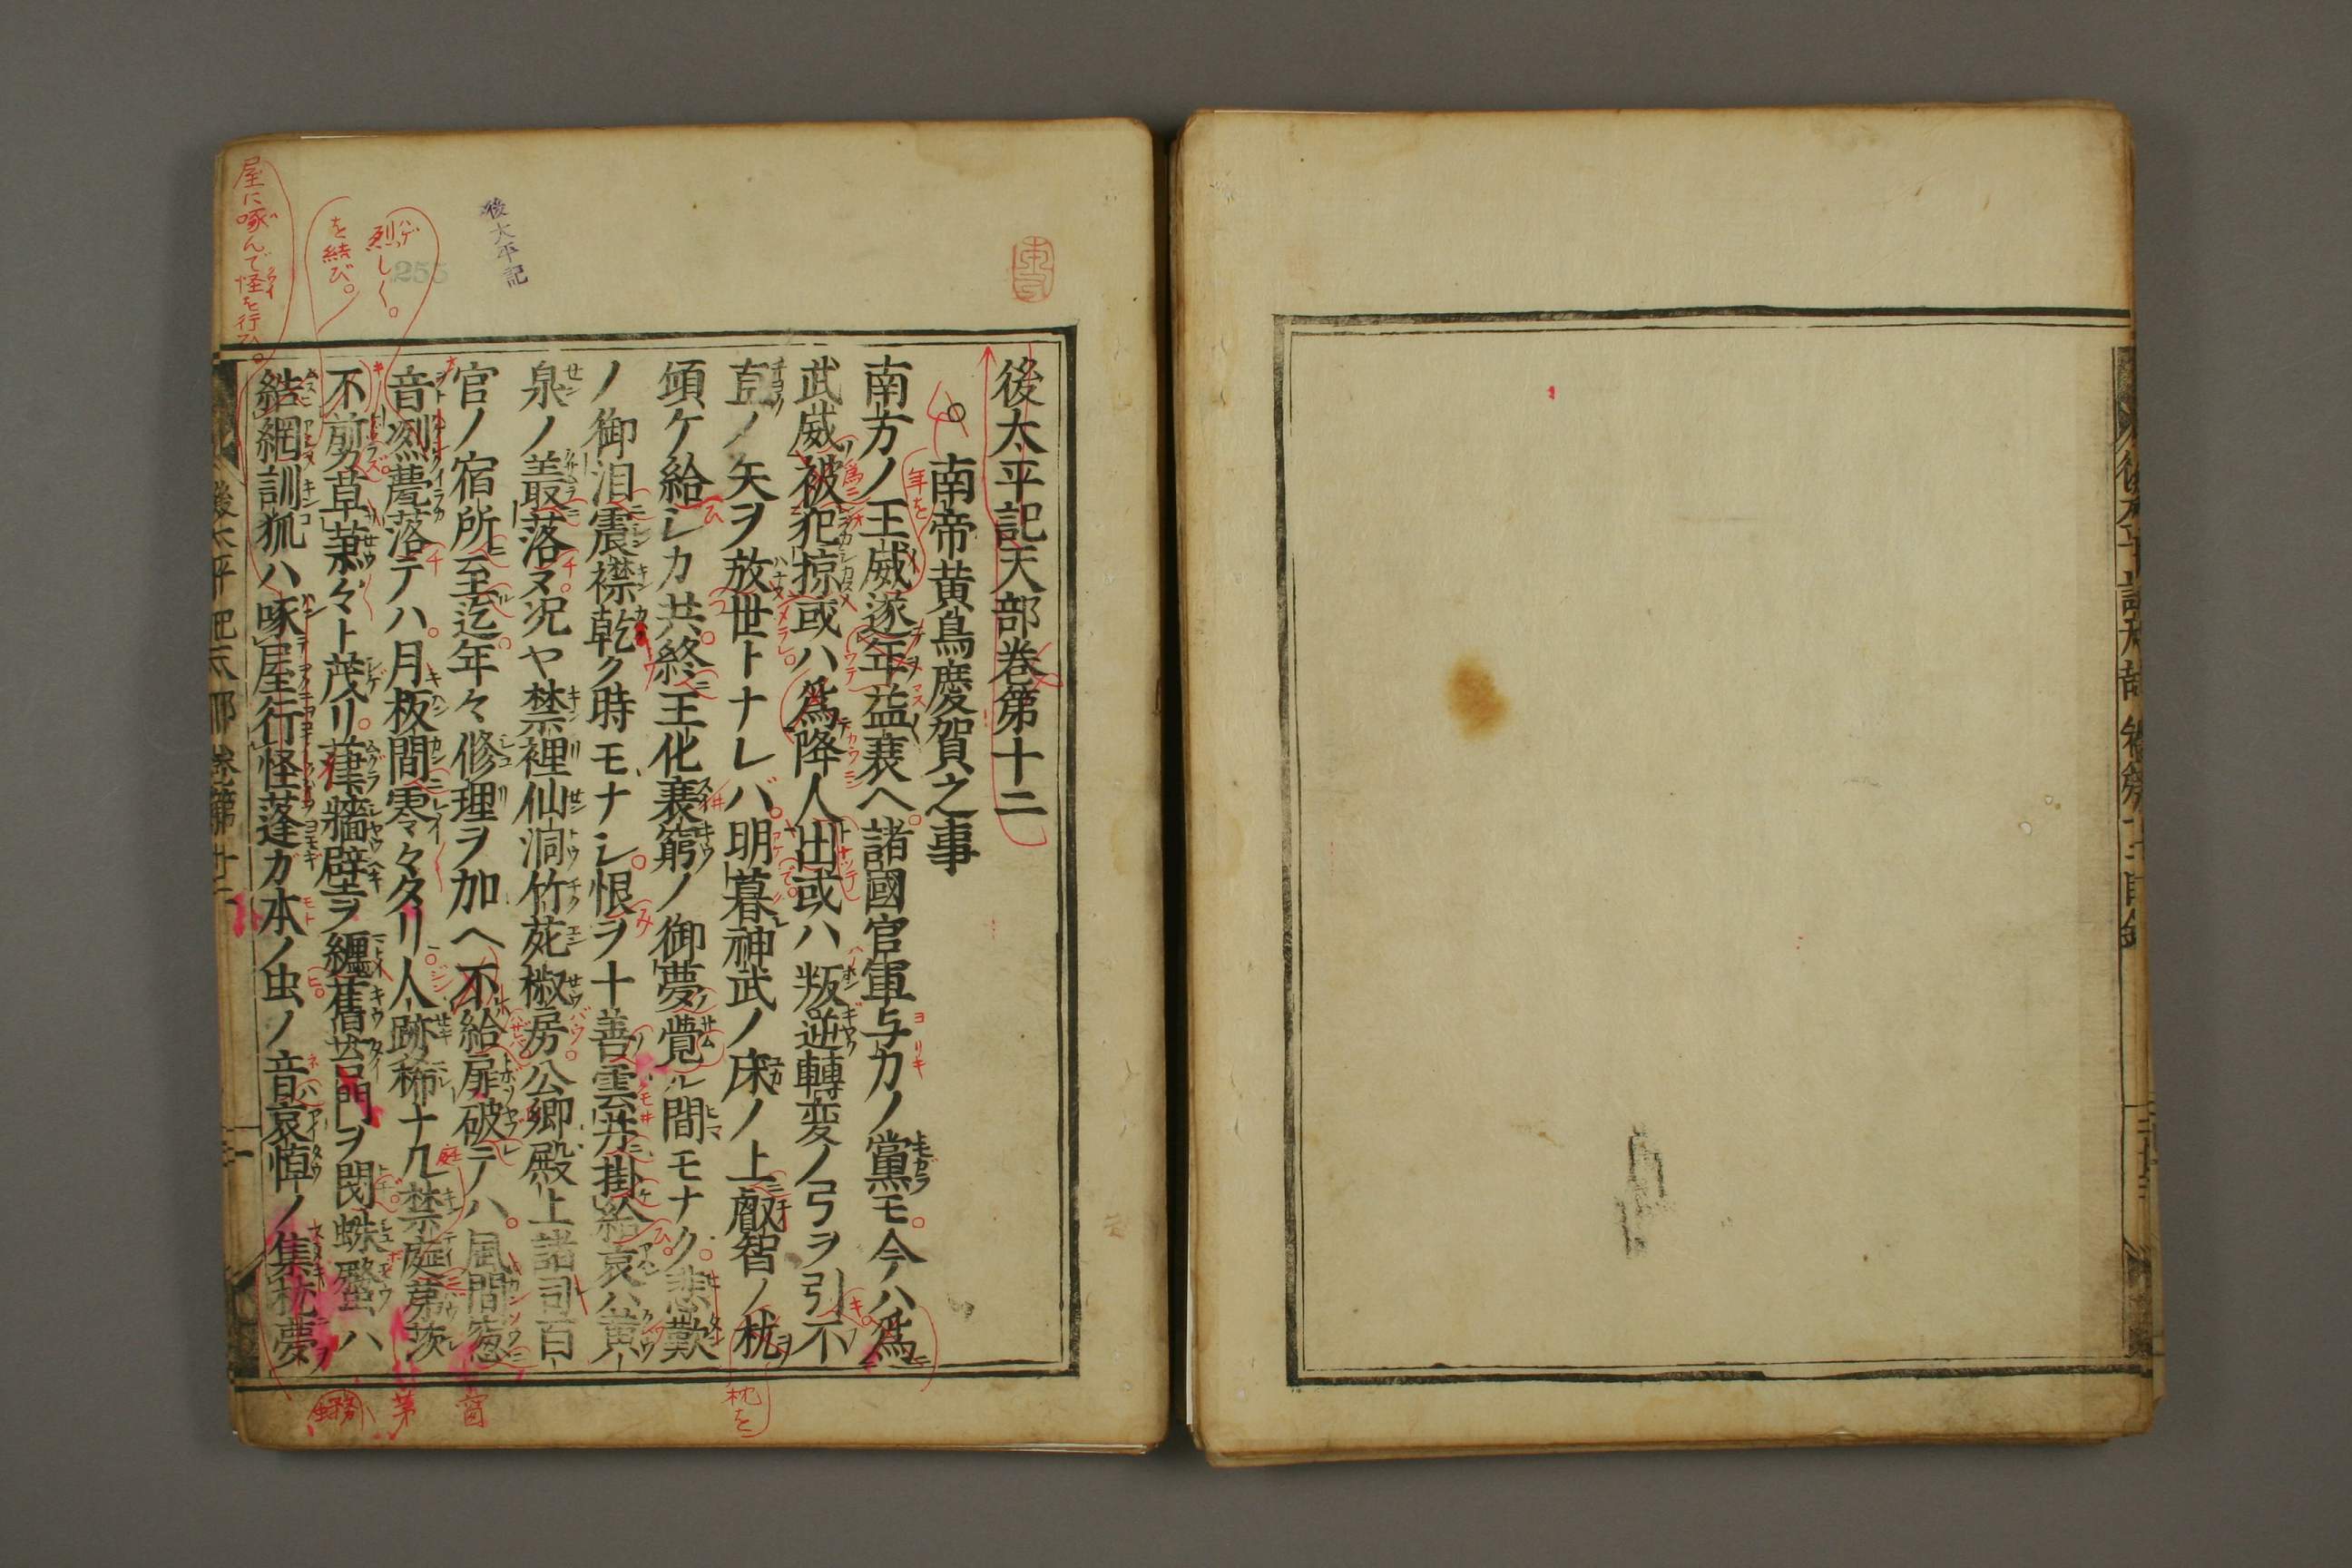 後太平記天部巻第十二
南帝黄鳥慶賀之事
南方ノ王威遂年益衰ヘ諸國官軍与力ノ黨モ今ハ為
武威被犯掠或ハ為降人出或ハ叛逆轉変ノ弓ヲ引不
直ノ矢ヲ放世トナレバ明暮神武ノ床ノ上叡智ノ枕
傾ケ給シカ共終王化衰窮ノ御夢覺ル間モナク悲歎
ノ御泪震襟乾ク時モナシ恨ヲ十善雲井掛給哀ハ黄
泉ノ叢落ヌ况ヤ禁裡仙洞竹苑椒房公卿殿上諸司百
官ノ宿所至迄年々修理ヲ加ヘ不給扉破テハ風間窓
音烈甍落テハ月板間零々タリ人跡稀ナル禁庭茅茨
不剪草蕭々ト茂リ葎牆壁ヲ纏舊苔門ヲ閉蛛蝥ハ
結網訓狐ハ啄屋行怪蓬ガ本ノ虫ノ音哀悼ノ集枕夢
後太平記
屋に啄んで怪を行ひ。
を結び。
烈しく。
255
年を
枕を
窗
茅
庭
後太平記天部 巻第十二
後太平記天部 巻第十二目録